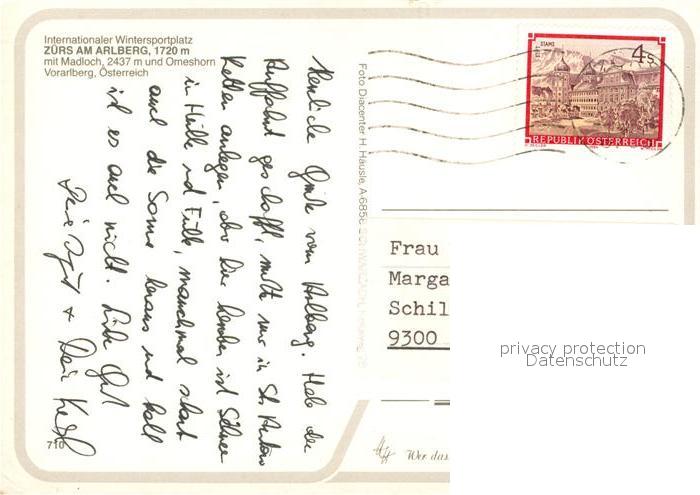 Internationaler Wintersportplatz
ZÜRS AM ARLBERG, 1720 m
mit Madloch, 2437 m und Omeshorn
Vorarlberg, Österreich
Herzliche Grüße vom Arlberg. Habe die
Auffahrt geschafft, mußte nur in St. Anton
Ketten anlegen, aber hier heroben ist Schnee
in Hülle und Fülle, manchmal schaut
auch die Sonne heraus und kalt
ist es auch nicht. Liebe
710
Foto Diacenter H. Häusle, A-6858 SCHWARZACH
STIFT STAMS
4 S
REPUBLIK ÖSTERREICH
Frau
Marga
Schil
9300
Wer das
privacy protection
Datenschutz